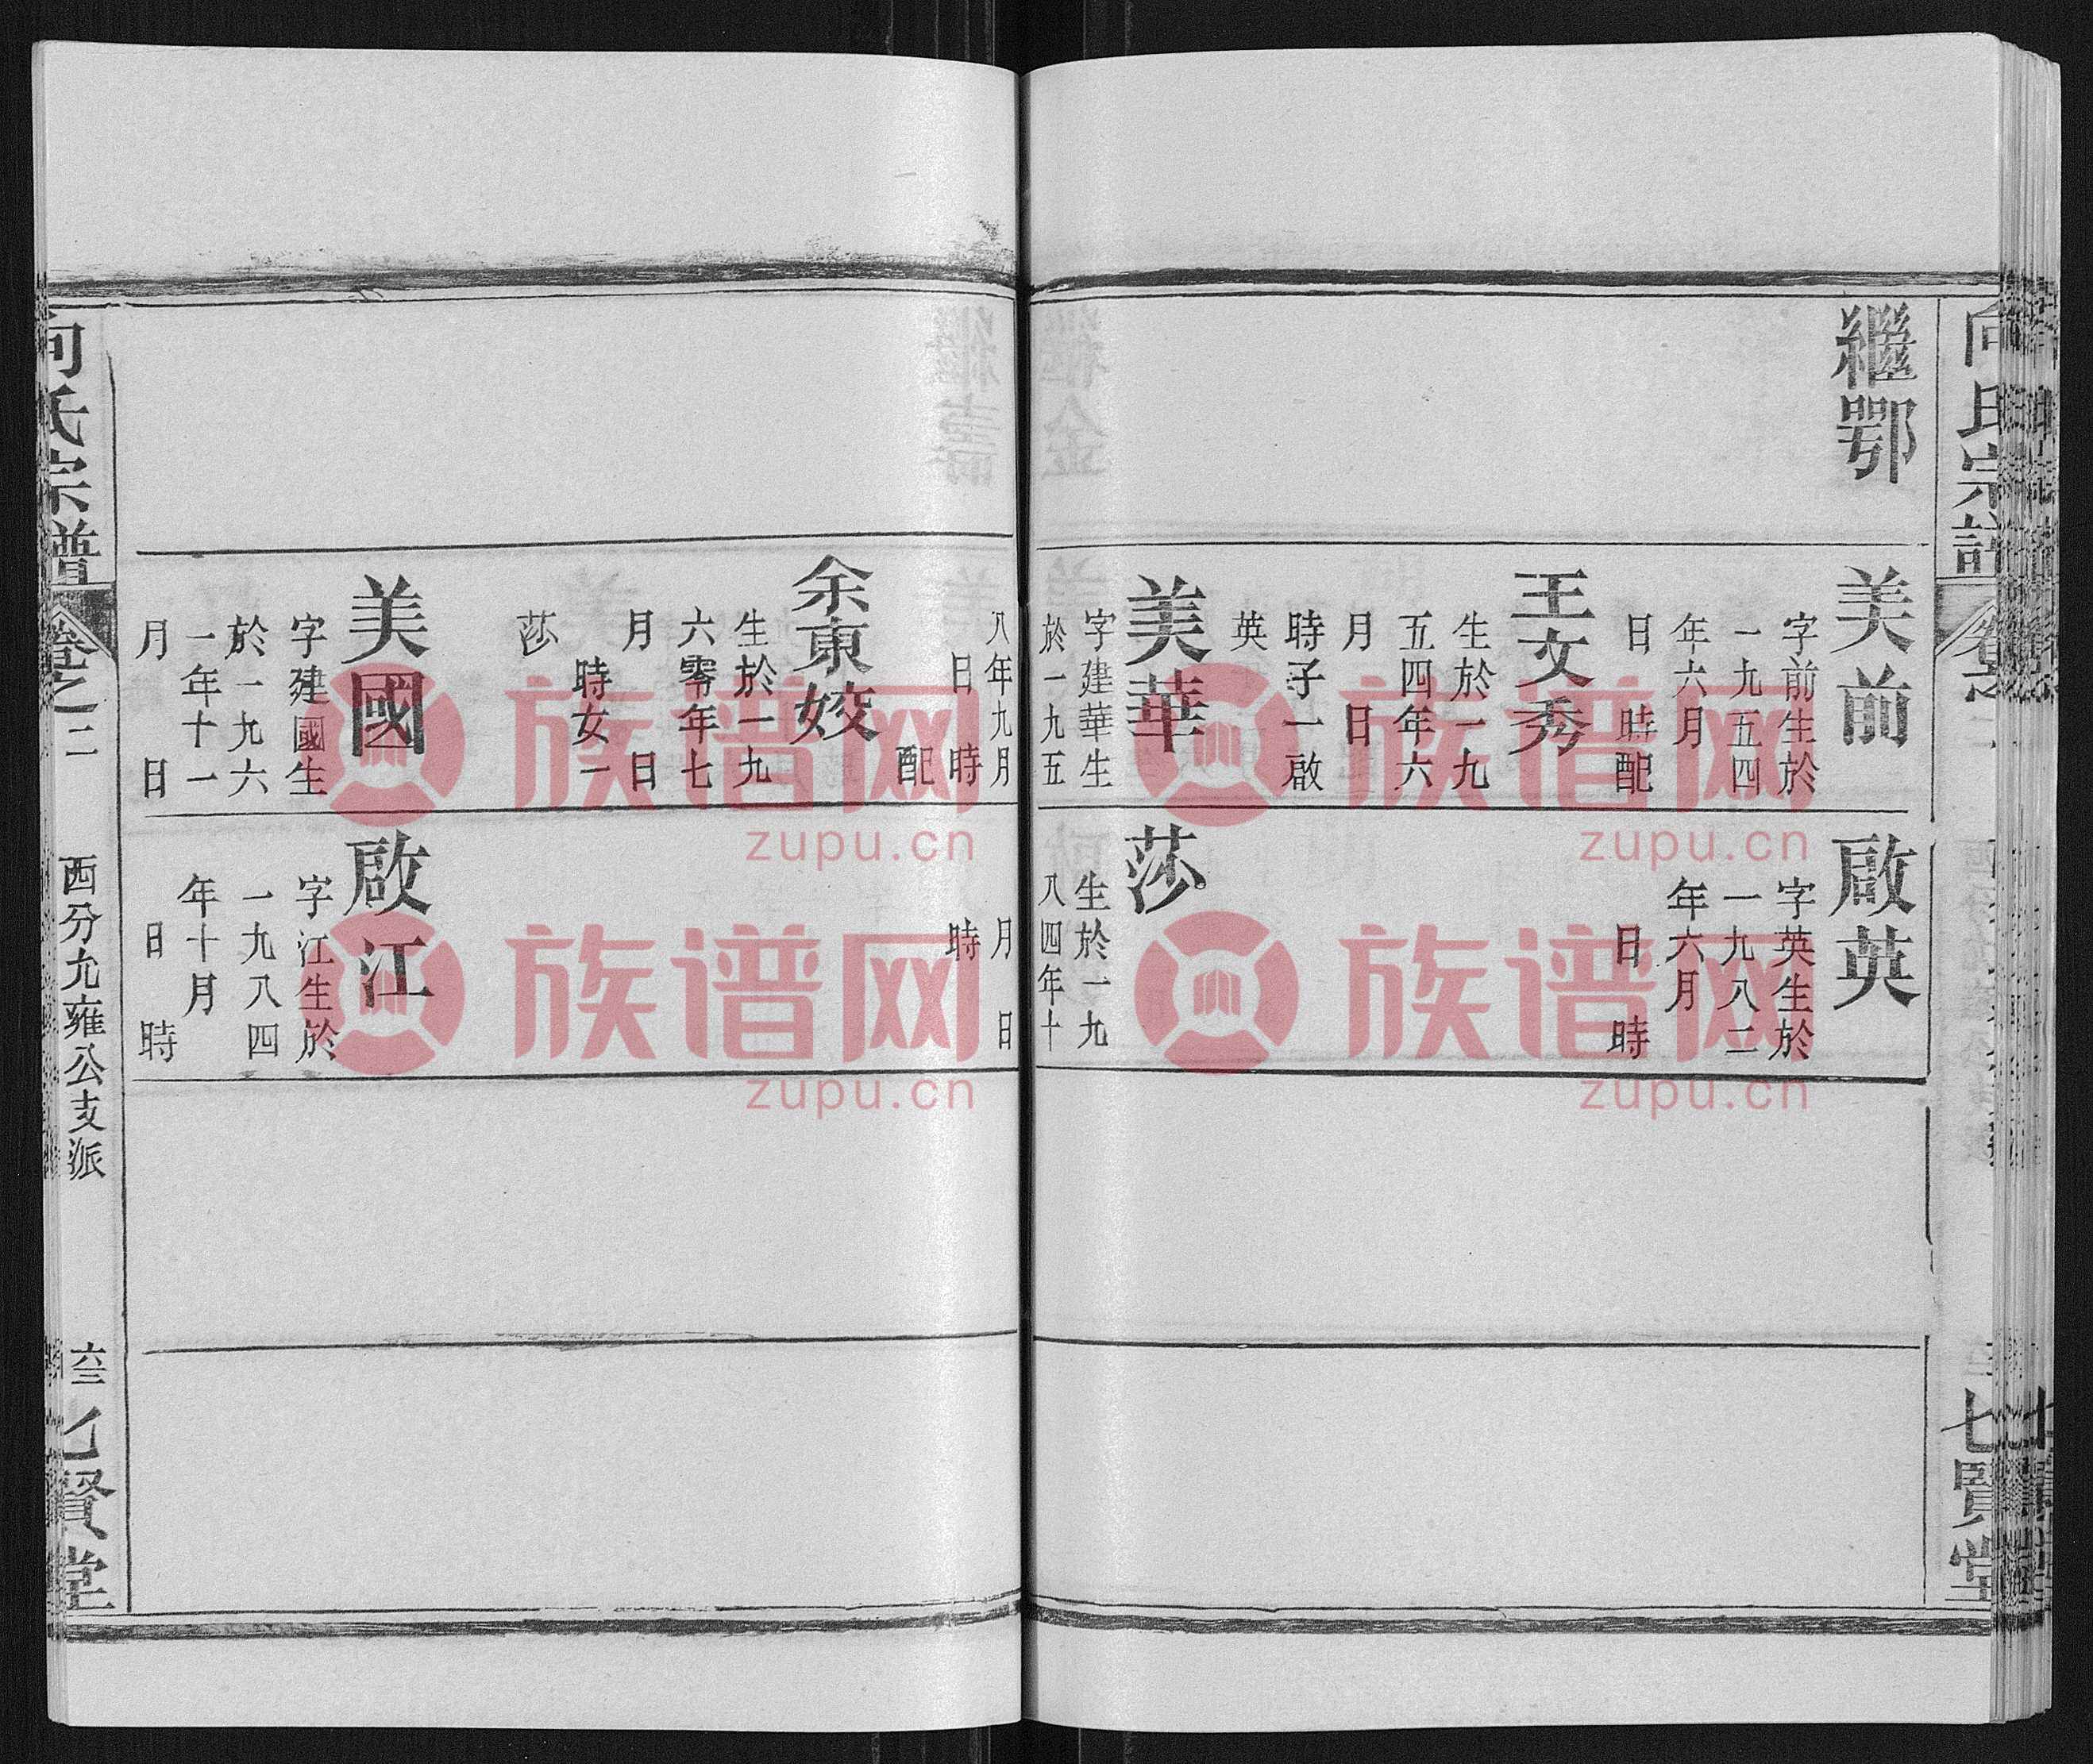 繼鄂
美前
字前生於
一九五四
年六月
日 時配
王文秀
生於一九
五四年六
月 日
時子一啟
英
美華
字建華生
於一九五
啟英
字英生於
一九八二
年六月
日 時
莎
生於一九
八四年十
八年九月
日 時
配
余東姣
生於一九
六零年七
月 日
時女一
莎
美國
字建國生
於一九六
一年十一
月 日
月 日
時
啟江
字江生於
一九八四
年十月
日 時
向氏宗譜
卷之二
西分允雍公支派
六三
七賢堂
向氏宗譜
七賢堂
族谱网
zupu.cn
族谱网
zupu.cn
族谱网
zupu.cn
族谱网
zupu.cn